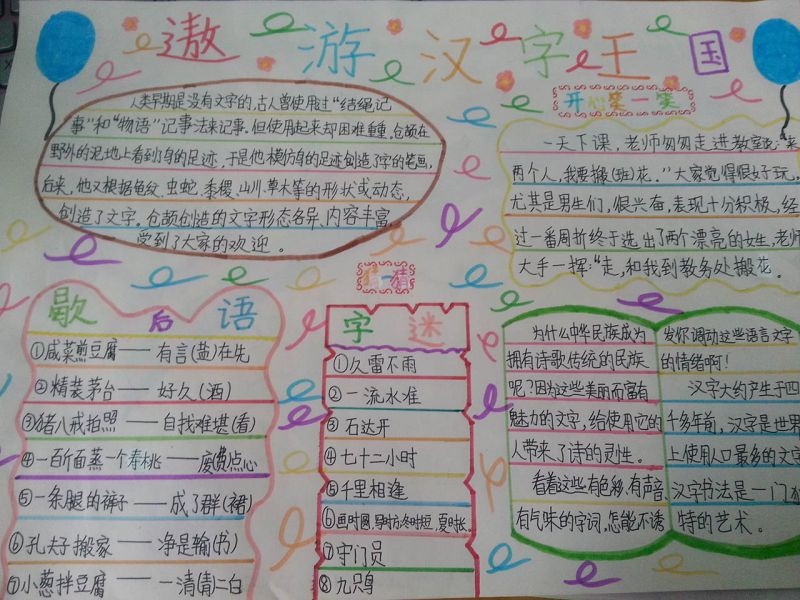 遨游汉字王国
人类早期是没有文字的,古人曾使用过“结绳记
事”和“物语”记事法来记事。但使用起来却困难重重,仓颉在
野外的泥地上看到鸟的足迹,于是他模仿鸟的足迹创造了字的笔画,
后来,他又根据龟纹、虫蛇、黍稷、山川、草木等的形状或动态,
创造了文字。仓颉创造的文字形态各异、内容丰富,
受到了大家的欢迎。
开心笑一笑
一天下课,老师匆匆走进教室说:“来
两个人,我要搬(班)花.”大家觉得很好玩,
尤其是男生们,很兴奋,表现十分积极,经
过一番周折终于选出了两个漂亮的女生,老师
大手一挥:“走,和我到教务处搬花。
歇后语
①咸菜煎豆腐——有言(盐)在先
②精装茅台——好久(酒)
③猪八戒拍照——自找难堪(看)
④一百斤面蒸一个寿桃——废费点心
⑤一条腿的裤子——成了群(裙)
⑥孔夫子搬家——净是输(书)
⑦小葱拌豆腐——一清(青)二白
猜一猜
字迷
①久雷不雨
②一流水准
③石达开
④七十二小时
⑤千里相逢
⑥画时圆,写时方,冬时短,夏时长.
⑦守门员
⑧九只鸟
为什么中华民族成为
拥有诗歌传统的民族
呢?因为这些美丽而富有
魅力的文字,给使用它的
人带来了诗的灵性。
看着这些有色彩、有声音、
有气味的字词,怎能不诱
发你调动这些语言文字
的情绪啊!
汉字大约产生于四
千多年前,汉字是世界
上使用人口最多的文字
汉字书法是一门独
特的艺术。